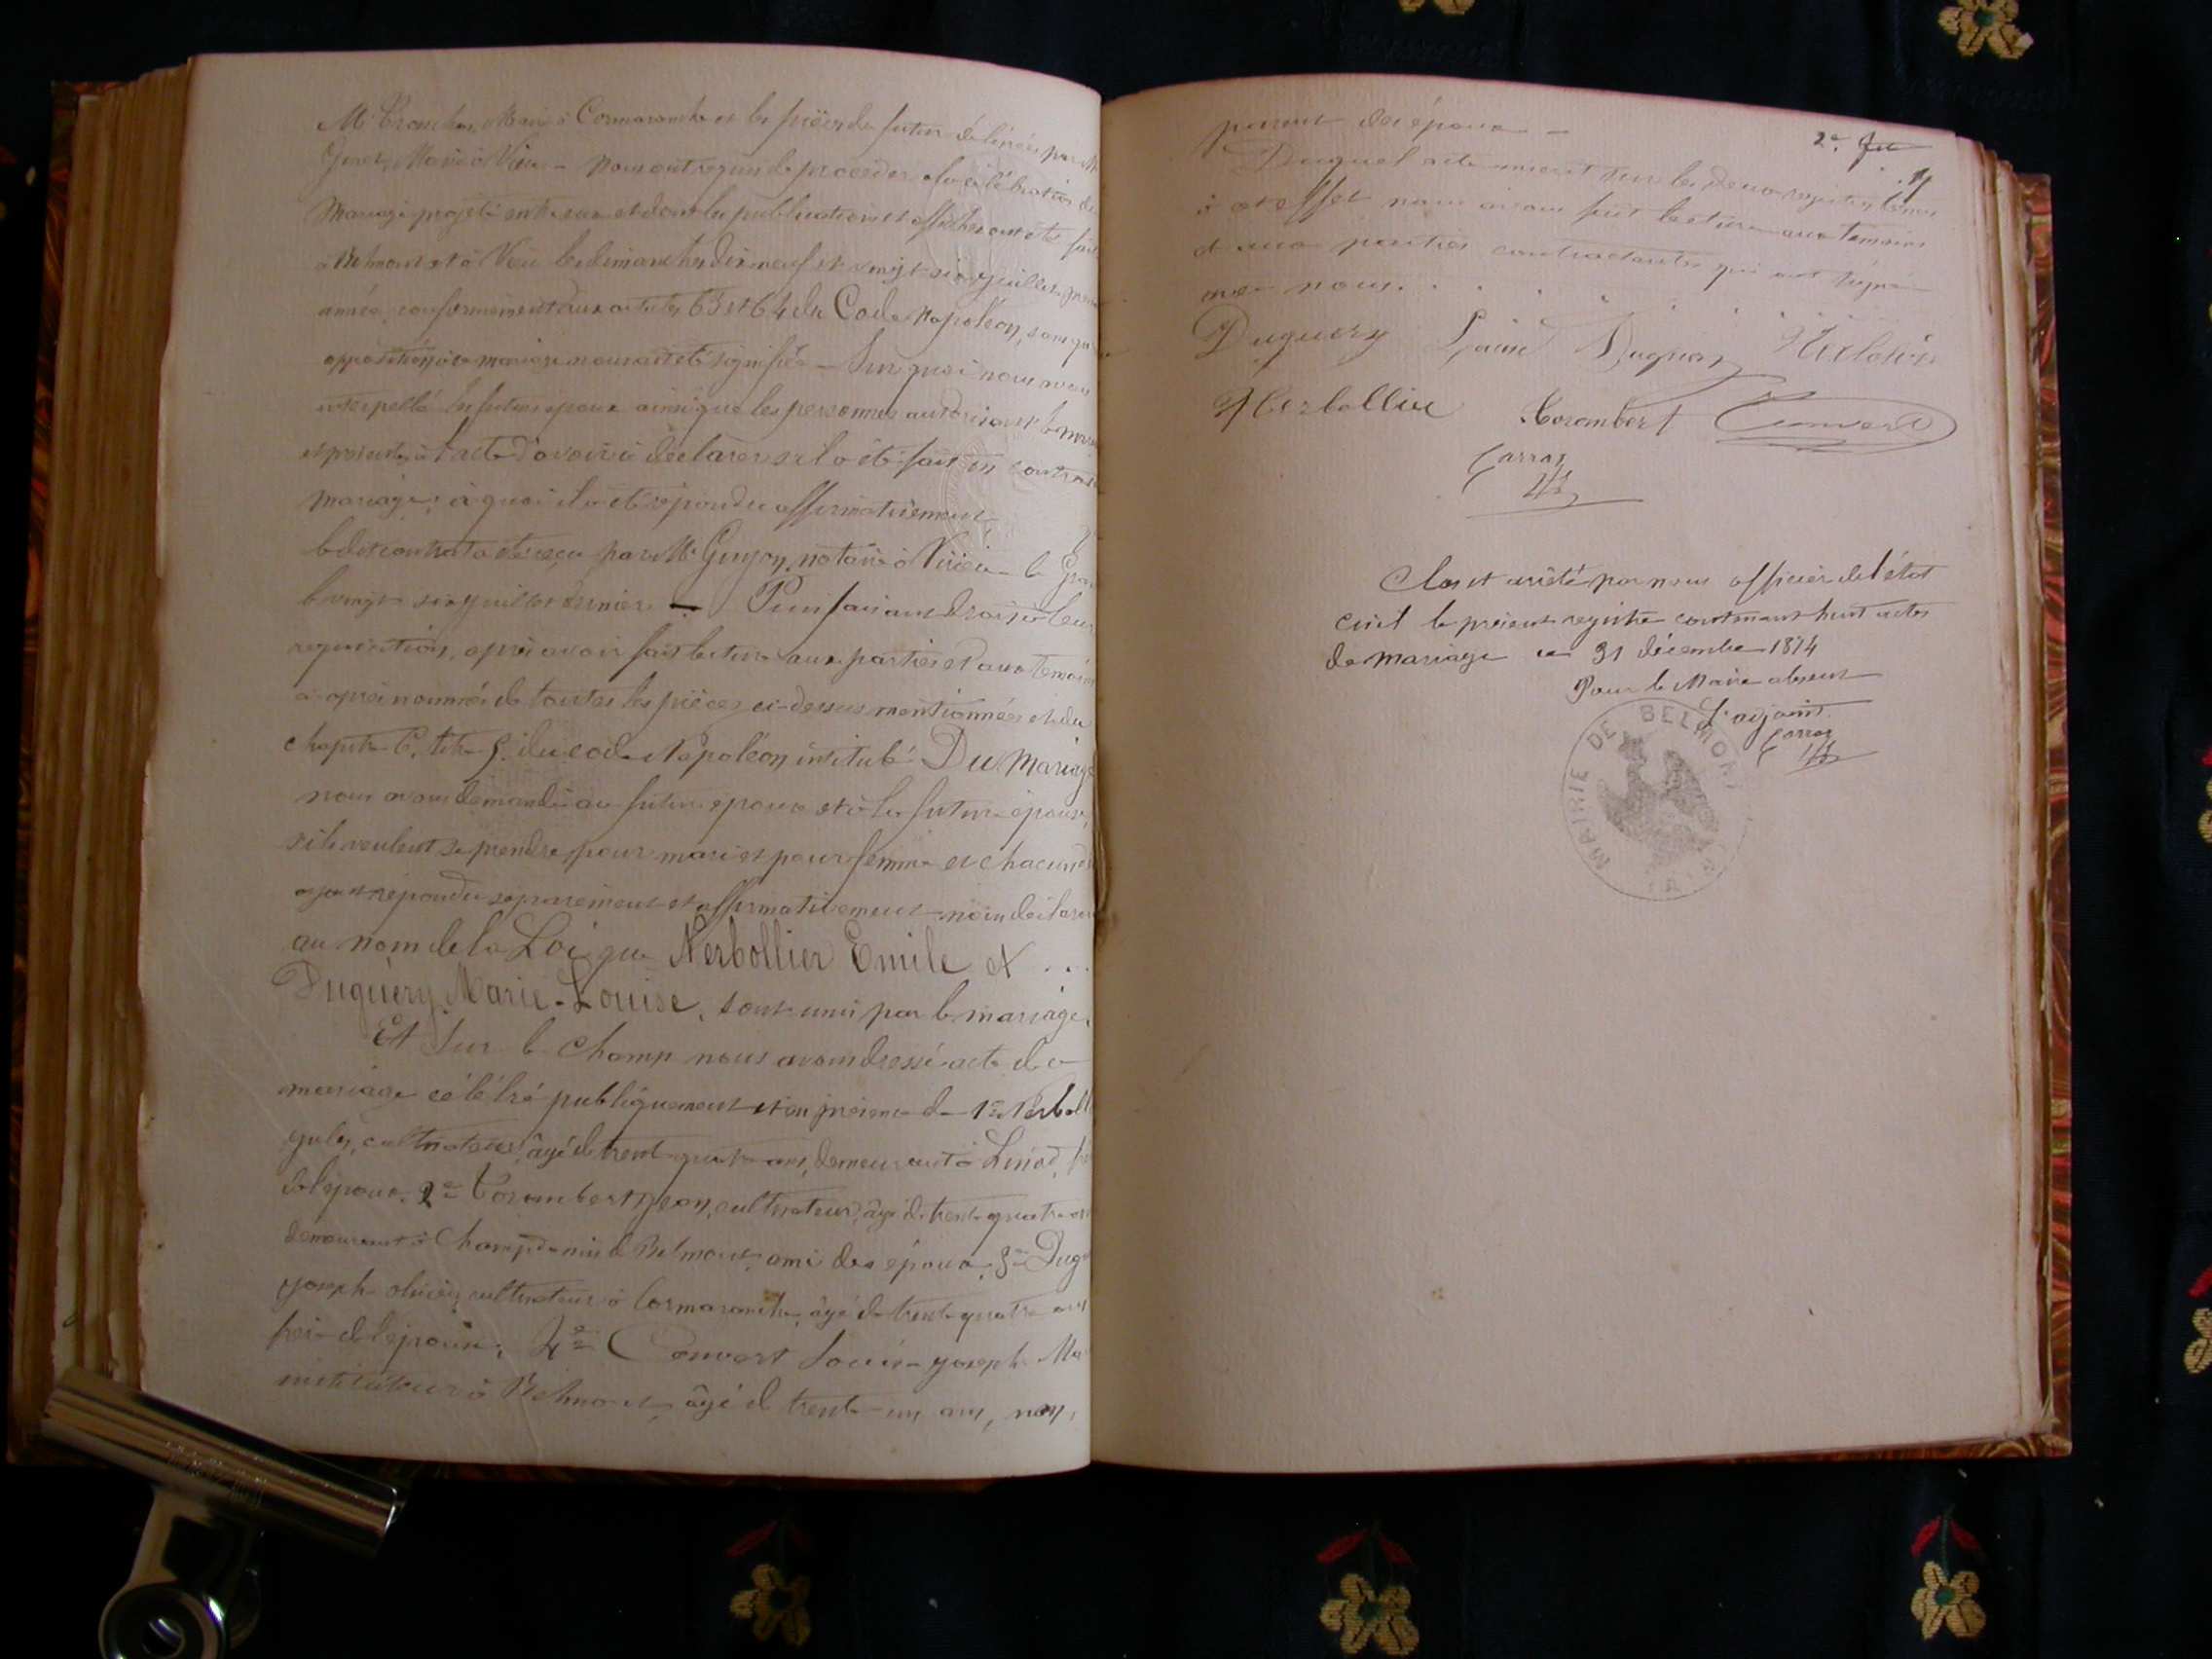 Mr Tranchon, Maire à Cormaranche et les pièces du futur délivrées par Mr
Maire à Vieu - Nous ont requis de procéder à la célébration du
Mariage projeté entre eux et dont les publications et affiches ont été faites
à Belmont et à Vieu les dimanches dix-neuf et vingt six juillet
année, conformément aux articles 63 et 64 du Code Napoléon, sans qu
opposition à ce mariage nous ait été signifiée - Sur quoi nous avons
interpellé les futurs époux ainsi que les personnes autorisant le
et présentes à l'acte d'avoir à déclarer s'il a été fait un contrat
mariage; à quoi il a été répondu affirmativement
ledit contrat a été reçu par Me Guyon, notaire à Virieu-le Gran
le vingt six juillet dernier - Puis faisant droit à leur
requisition, après avoir fait lecture aux parties et aux témoins
ci-après nommés de toutes les pièces ci-dessus mentionnées et du
chapitre 6, titre 5. du code Napoléon intitulé: Du Mariage
nous avons demandé au futur époux et à la future épouse,
s'ils veulent se prendre pour mari et pour femme et chacun d
ayant répondu séparément et affirmativement - nous déclaron
au nom de la Loi que Nerbollier Emile et ...
Duguery Marie-Louise, sont unis par le mariage.
Et sur le champ nous avons dressé acte de ce
mariage célébré publiquement et en présence de 1er Nerboll
Jules, cultivateur, âgé de trente quatre ans, demeurant à Linod, fr
de l'époux. 2e Corombert Jean, cultivateur, âgé de trente quatre an
demeurant à Champdossin de Belmont, ami des époux. 3e Dug
Joseph cultivateur à Cormaranche, âgé de trente quatre ans
de l'épouse. 4e Convert Louis-Joseph Ma
instituteur à Belmont, âgé de trente-un ans, non,
2e. Fu
parent des époux -
Duquel acte inscrit sur les deux registres tenus
à cet effet nous avons fait lecture aux témoins
et aux parties contractantes qui ont signé
avec nous.
Duguery Louise Duguery Nerbollier
Nerbollier Corombert Convert
Carraz
Clos et arrêté par nous officier de l'état
civil le présent registre contenant huit actes
de mariage ce 31 décembre 1874
Pour le Maire absent
L'adjoint
Carraz
MAIRIE DE BELMONT